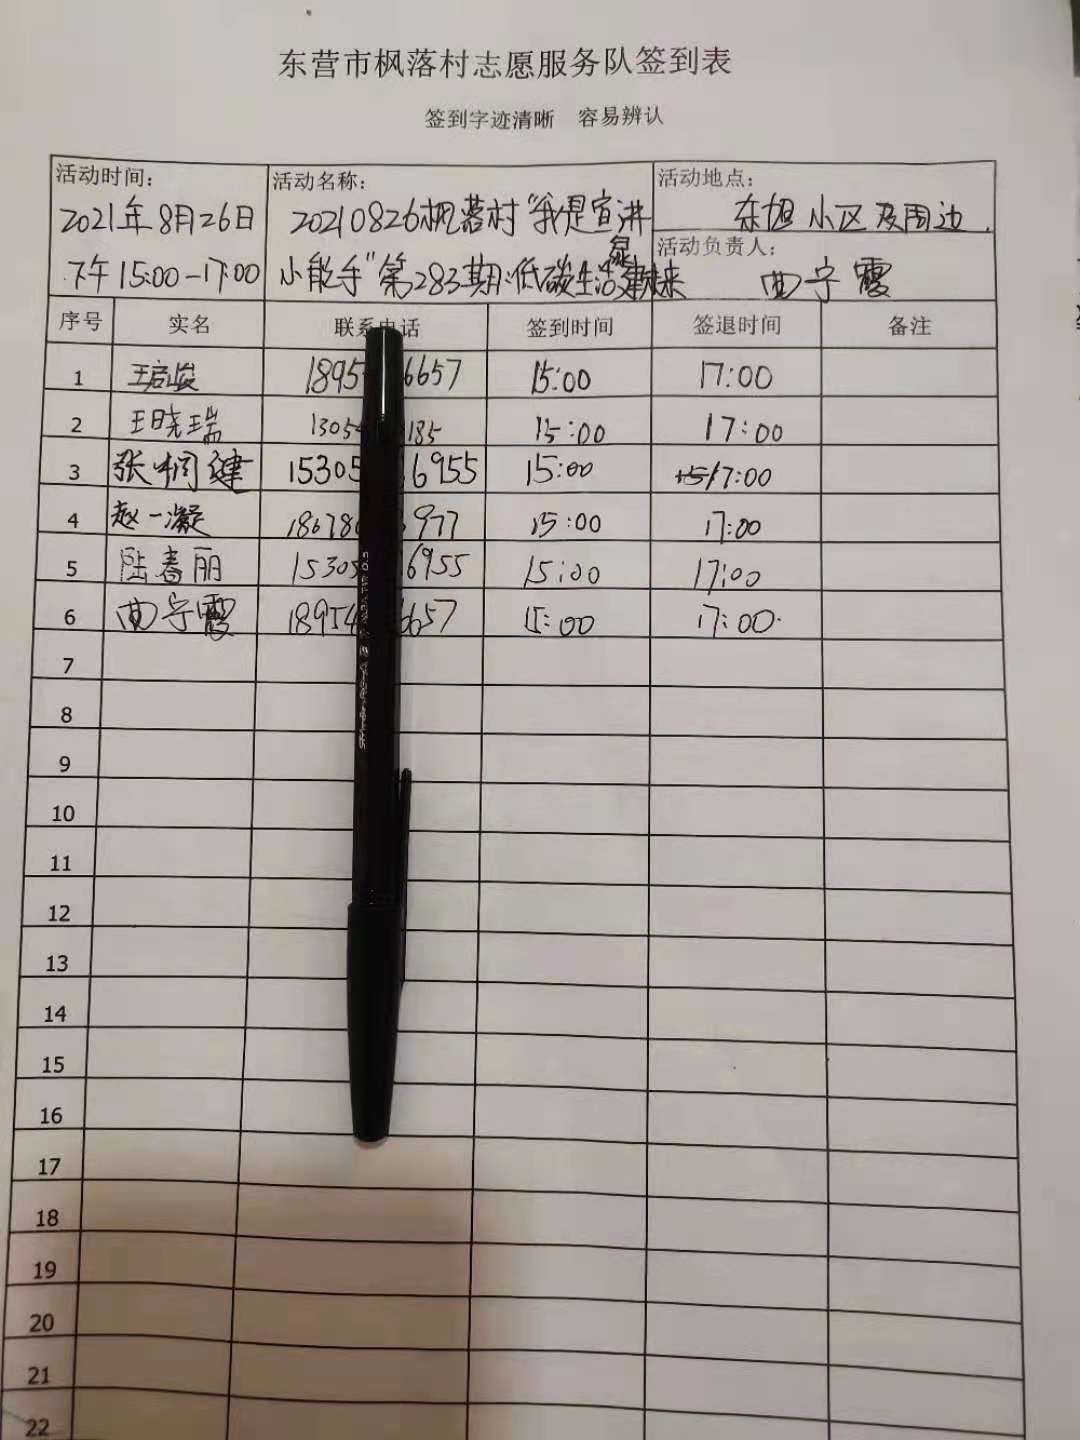 东营市枫落村志愿服务队签到表
签到字迹清晰 容易辨认
活动时间： 活动名称： 活动地点：
2021年8月26日 20210826枫落村"我是宣讲 东旭小区及周边
活动负责人：
下午15:00-17:00 小能手"第283期:低碳生活绿建未来 曲宁霞
序号 实名 联系电话 签到时间 签退时间 备注
1 王启岚 1895 6657 15:00 17:00
2 王晓瑞 1305 185 15:00 17:00
3 张栩健 15305 6955 15:00 17:00
4 赵一凝 18678 977 15:00 17:00
5 陆春丽 15305 6955 15:00 17:00
6 曲宁霞 18954 6657 15:00 17:00
7
8
9
10
11
12
13
14
15
16
17
18
19
20
21
22